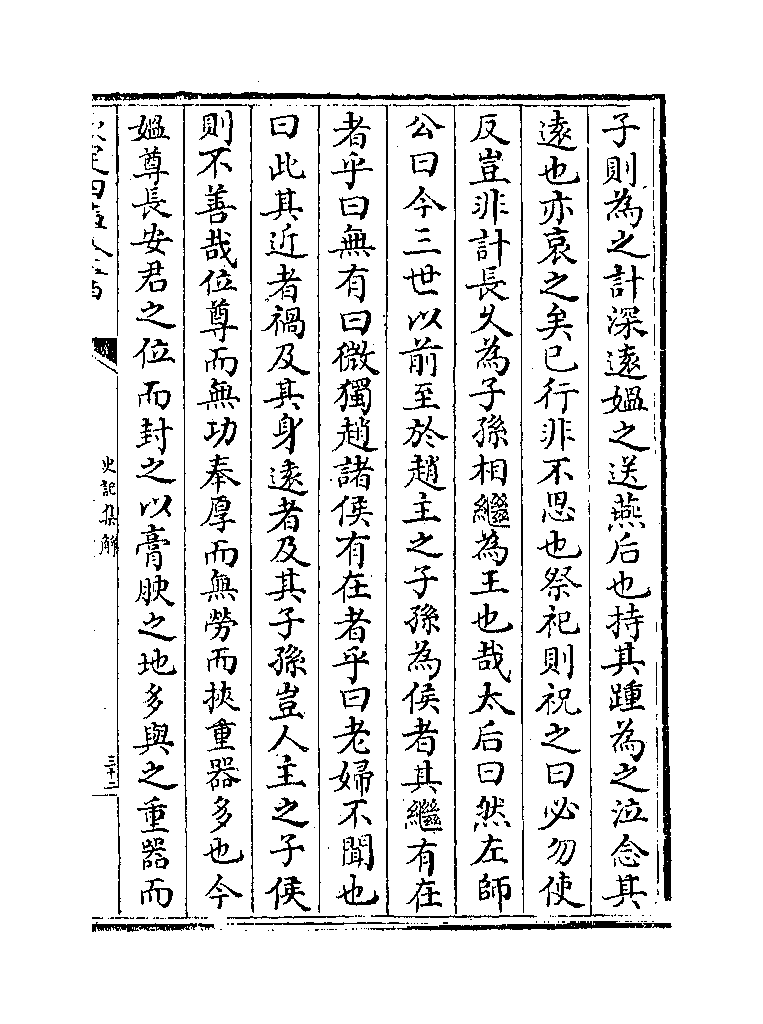 子則為之計深逺媼之送燕后也持其踵為之泣念其
逺也亦哀之矣已行非不思也祭祀則祝之曰必勿使
反豈非計長乆為子孫相繼為王也哉太后曰然左師
公曰今三世以前至於趙主之子孫為侯者其繼有在
者乎曰無有曰微獨趙諸侯有在者乎曰老婦不聞也
曰此其近者禍及其身逺者及其子孫豈人主之子侯
則不善哉位尊而無功奉厚而無勞而挾重器多也今
媼尊長安君之位而封之以膏腴之地多與之重器而
史記集解
三十二